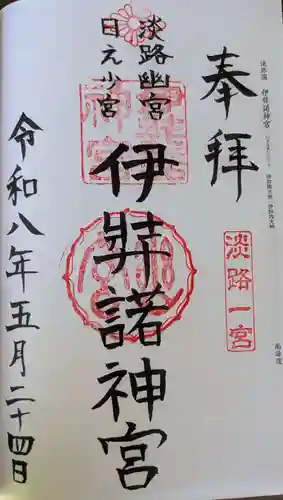 淡路國 伊弉諾神宮
奉拝
淡路一宮
南海道
淡路幽宮
日之少宮
伊弉諾神宮
令和八年五月二十四日